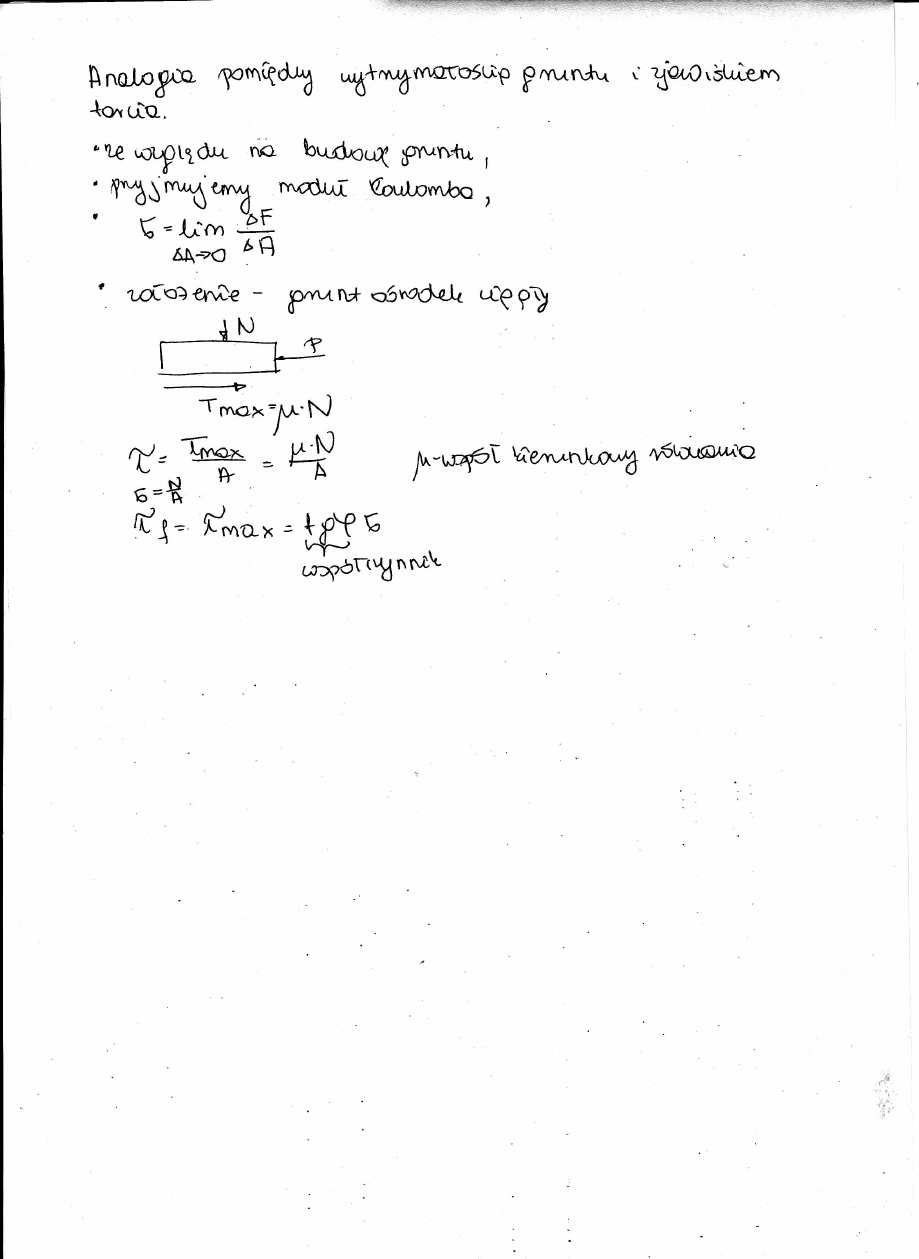 Analogia pomiędzy wytrzymałością gruntu i zjawiskiem
tarcia.
• ze względu na budowę gruntu,
• przyjmujemy model Coulomba,
• σ = lim ΔF/ΔA
ΔA→0
• założenie - grunt ośrodek ciągły
N
P
Tmax = μ·N
τ = Tmax/A = μ·N/A    μ-współ kierunkowy równania
σ = N/A
τf = τmax = tgφ σ
współczynnik